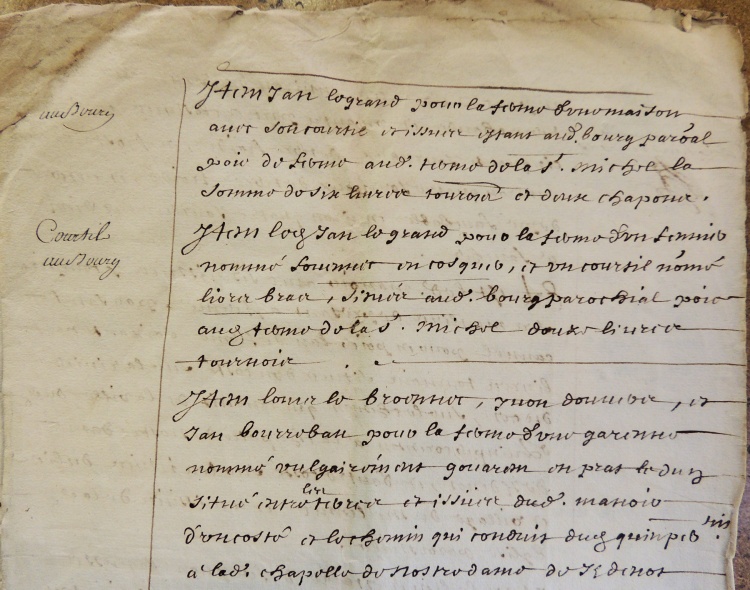 au Bourg
Item Jan legrand pour la ferme d'une maison
avec son courtil et issues estant aud. bourg paroal
poie de ferme aud. terme de la St. Michel la
somme de six livres tournois et deux chapons.
Courtil
au Bourg
Item led Jan le grand pour la ferme d'un
nommé en cosquer, et un courtil nomé
liors bras, situés aud. bourg parochial poie
aud terme de la St. Michel douze livres
tournois.
Item Louis le, yvon, et
Jan bourreban pour la ferme d'une garenne
nommé vulgairement gouarem en prat
situé entre les terres et issues dud. manoir
d'un costé et le chemin qui conduit dud quinper
à lad. chapelle de Nostre dame de